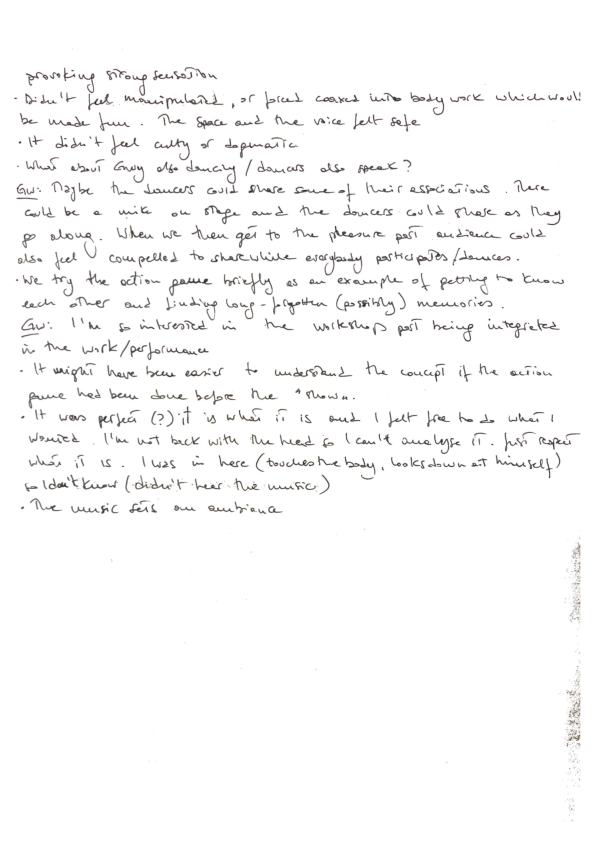 provoking strong sensation
· Didn't feel manipulated, or forced coaxed into body work which would
be made fun. The space and the voice felt safe
· It didn't feel culty or dogmatic
· What about Gwy also dancing/dancers also speak?
Gw: Maybe the dancers could share some of their associations. There
could be a mike on stage and the dancers could share as they
go along. When we then get to the pleasure part audience could
also feel compelled to share while everybody participates/dances.
· We try the action game briefly as an example of getting to know
each other and finding long-forgotten (possibly) memories.
Gw: I'm so interested in the workshop part being integrated
in the work/performance
· It might have been easier to understand the concept if the action
game had been done before the "show".
· It was perfect (?) it is what it is and I felt free to do what I
wanted. I'm not back with the head so I can't analyse it. Just respect
what it is. I was in here (touches the body, looks down at himself)
so I don't know (didn't hear the music)
· The music sets an ambiance